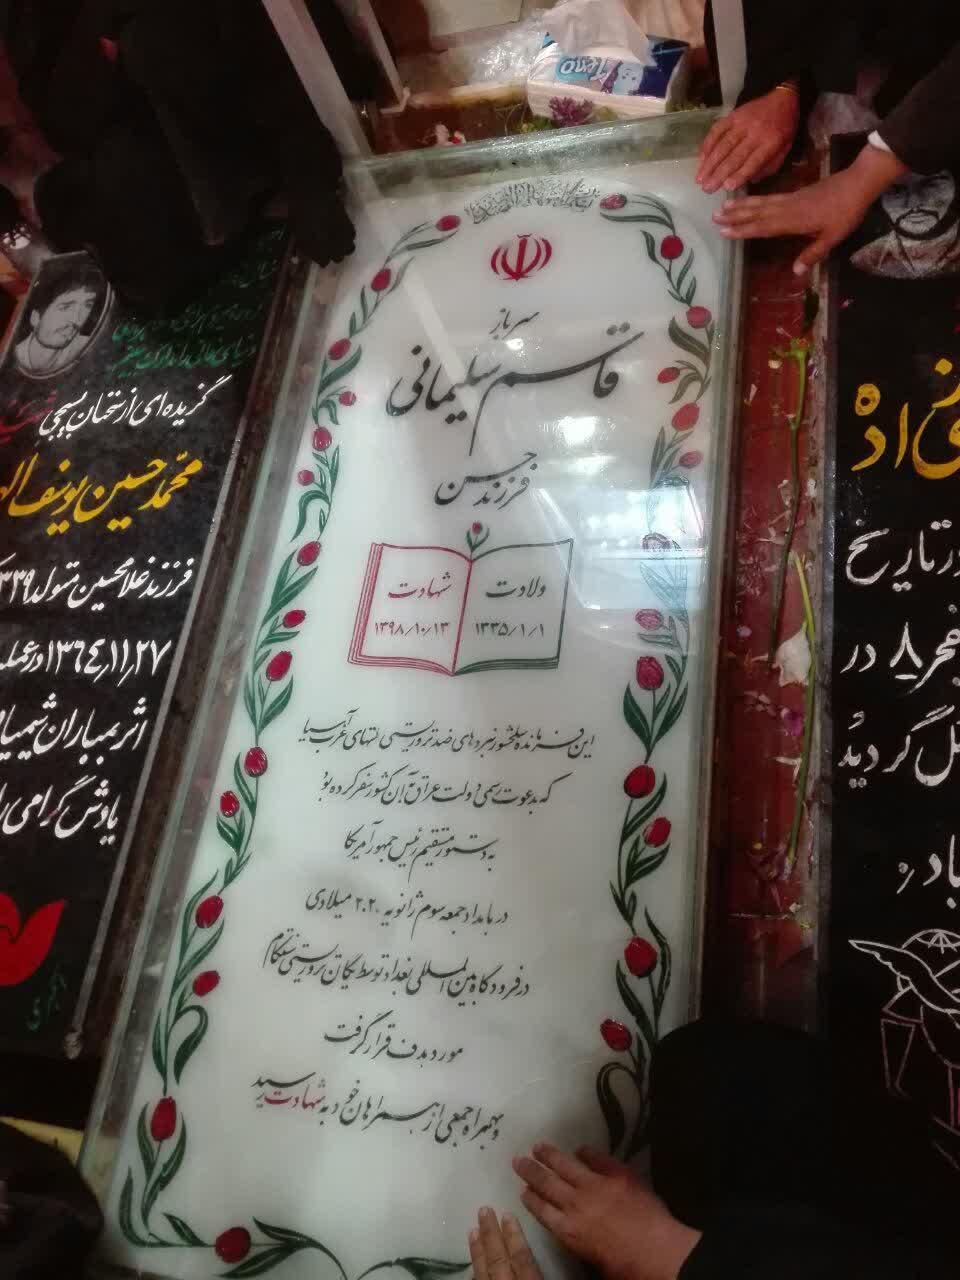 سرباز
قاسم سلیمانی
فرزند حسن
ولادت
۱۳۳۵/۱/۱
شهادت
۱۳۹۸/۱۰/۱۳
این فرمانده سلحشور نبردهای ضد تروریستی ملتهای غرب آسیا
که به دعوت رسمی دولت عراق به آن کشور سفر کرده بود
به دستور مستقیم رئیس جمهور آمریکا
در بامداد جمعه سوم ژانویه ۲۰۲۰ میلادی
در فرودگاه بین المللی بغداد توسط یگان تروریستی سنتکام
مورد هدف قرار گرفت
و به همراه جمعی از همراهان خود به شهادت رسید
گزیده ای از سخنان بسیجی
محمد حسین یوسف
فرزند غلامحسین متولد ۱۳۳۹
۱۳۶۴،۱۱،۲۷
اثر بمباران شیمیا
یادش گرامی
در تاریخ
فجر ۸ در
گردید
باد